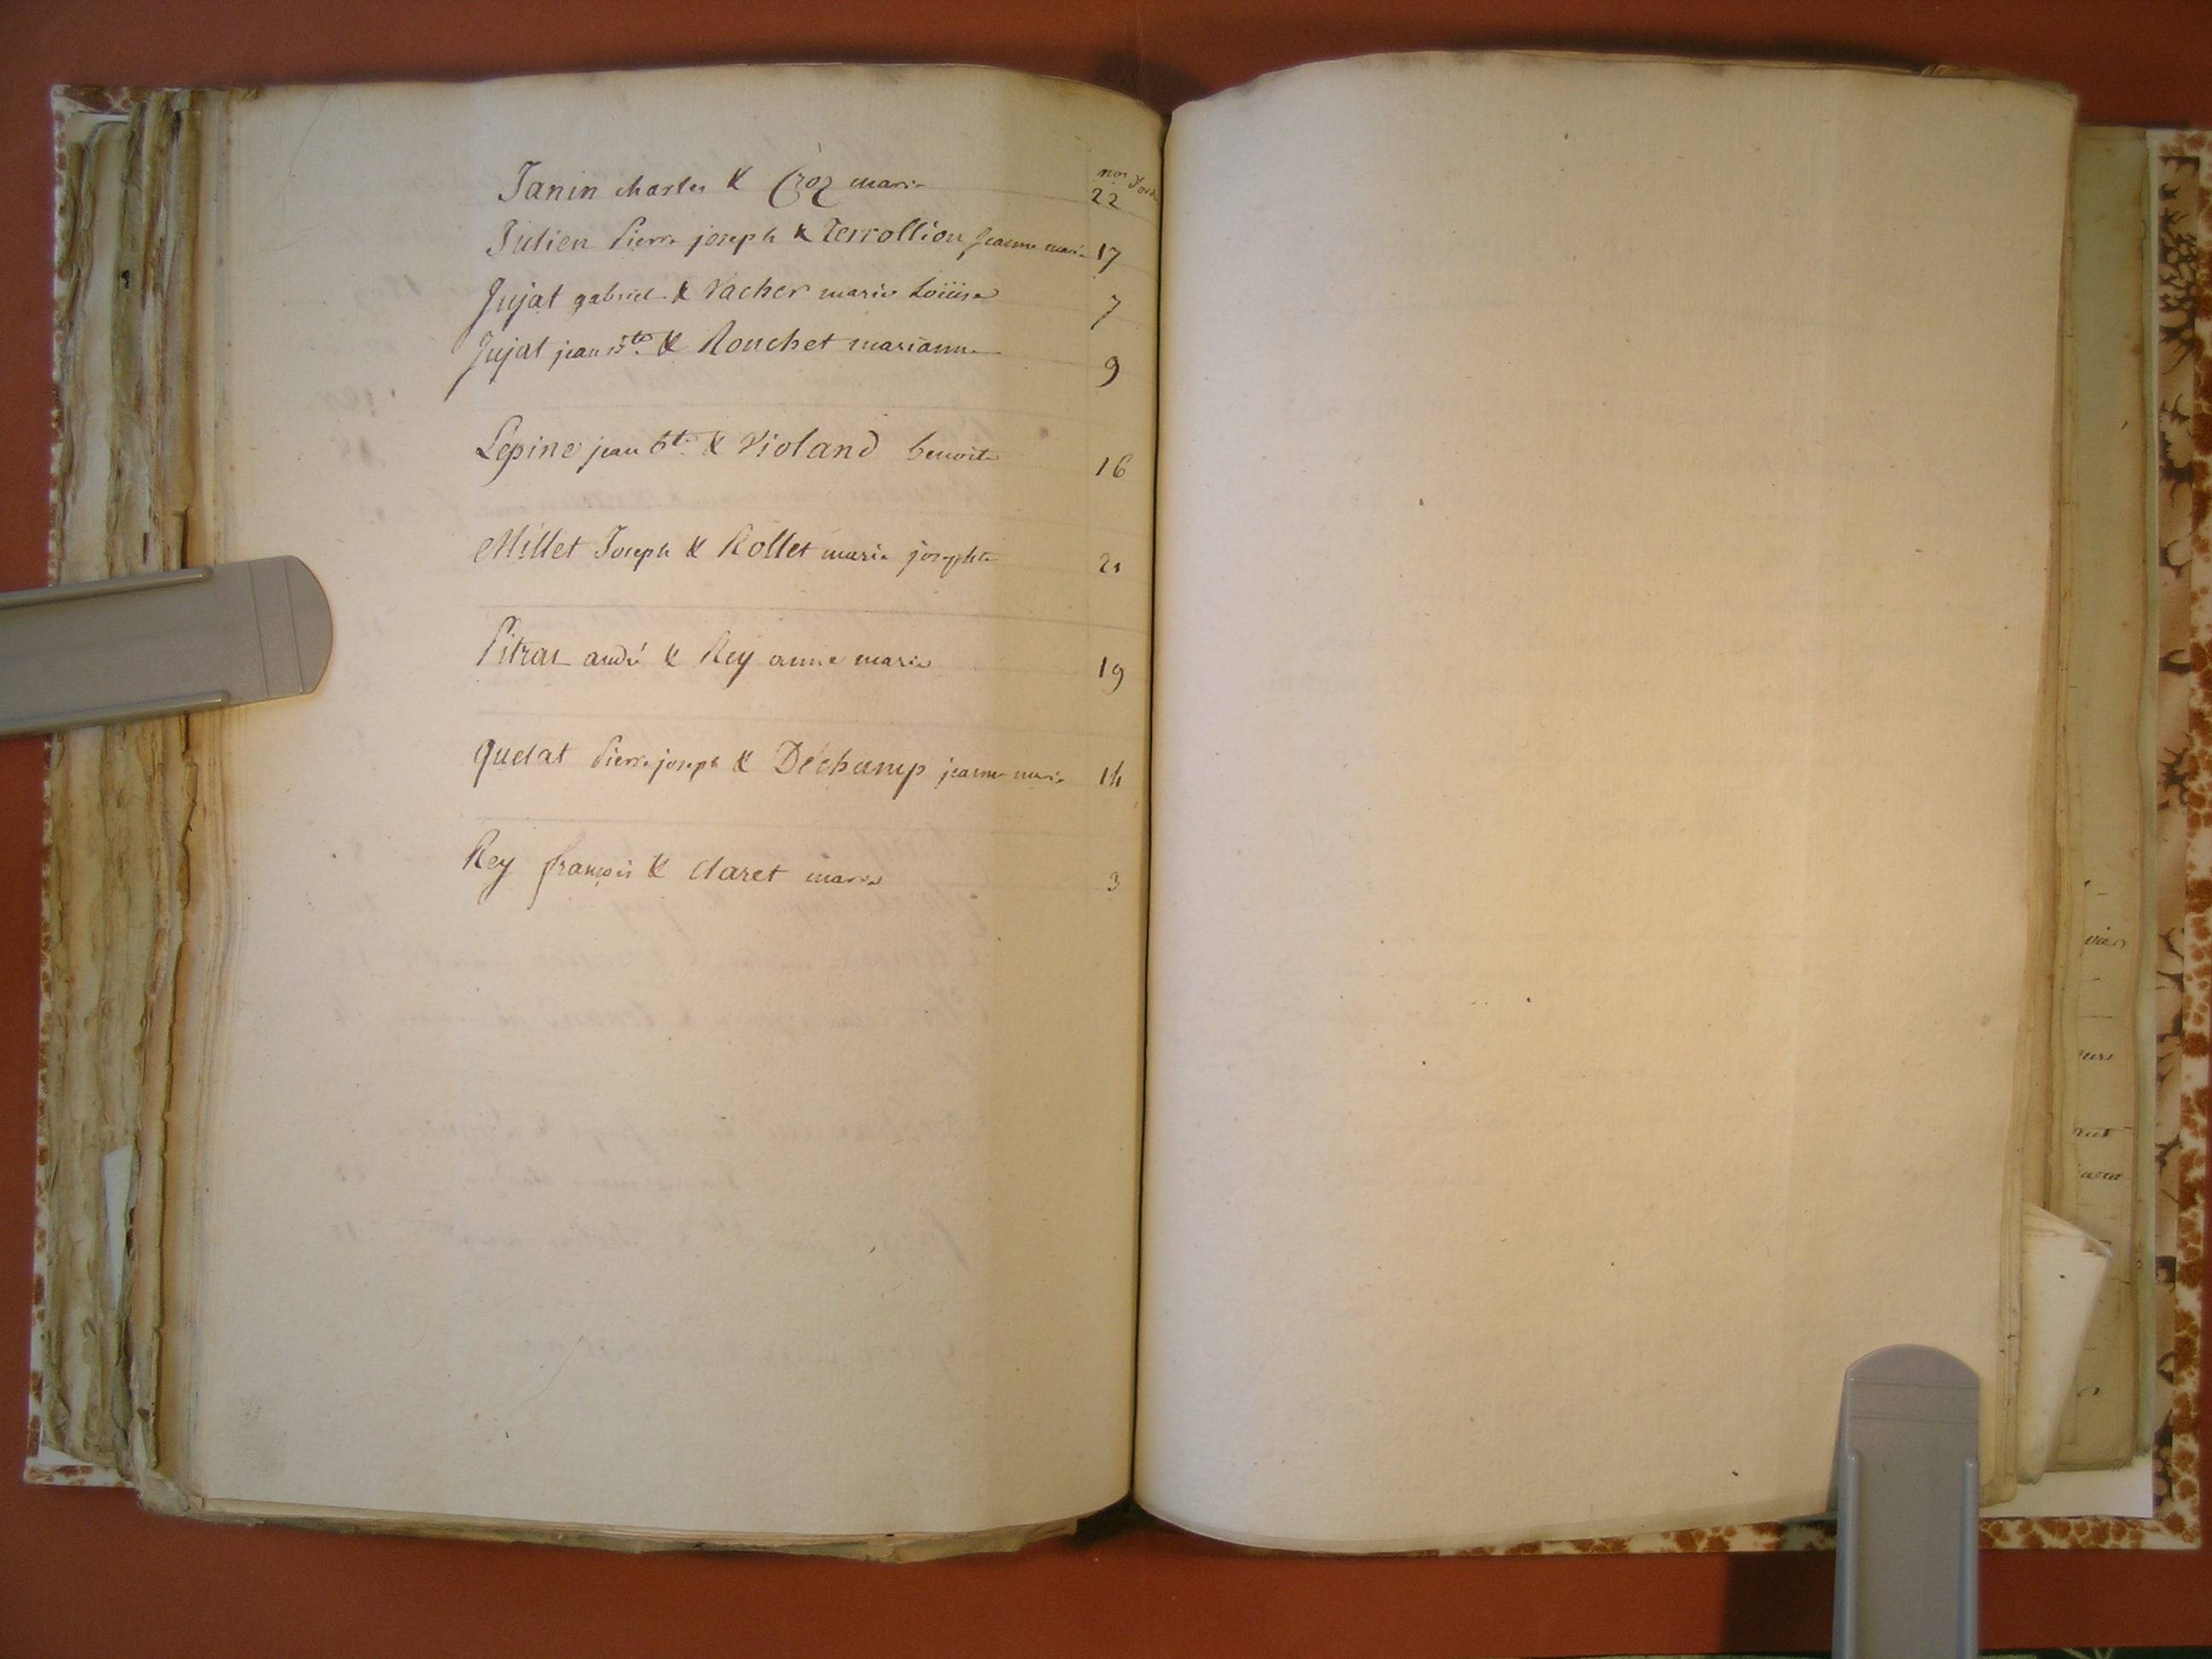 nos d'ord
Janin charles & Croz marie 22
Julien Pierre joseph & Terrollion Jeanne marie 17
Jujat gabriel & Vacher marie Loüise 7
Jujat jean bte & Rouchet marianne 9
Lepine jean bte & Violand benoite 16
Millet Joseph & Rollet marie josephte 21
Pitras andré & Rey anne marie 19
quelat Pierre joseph & Déchamp jeanne marie 14
Rey françois & Claret marie 3